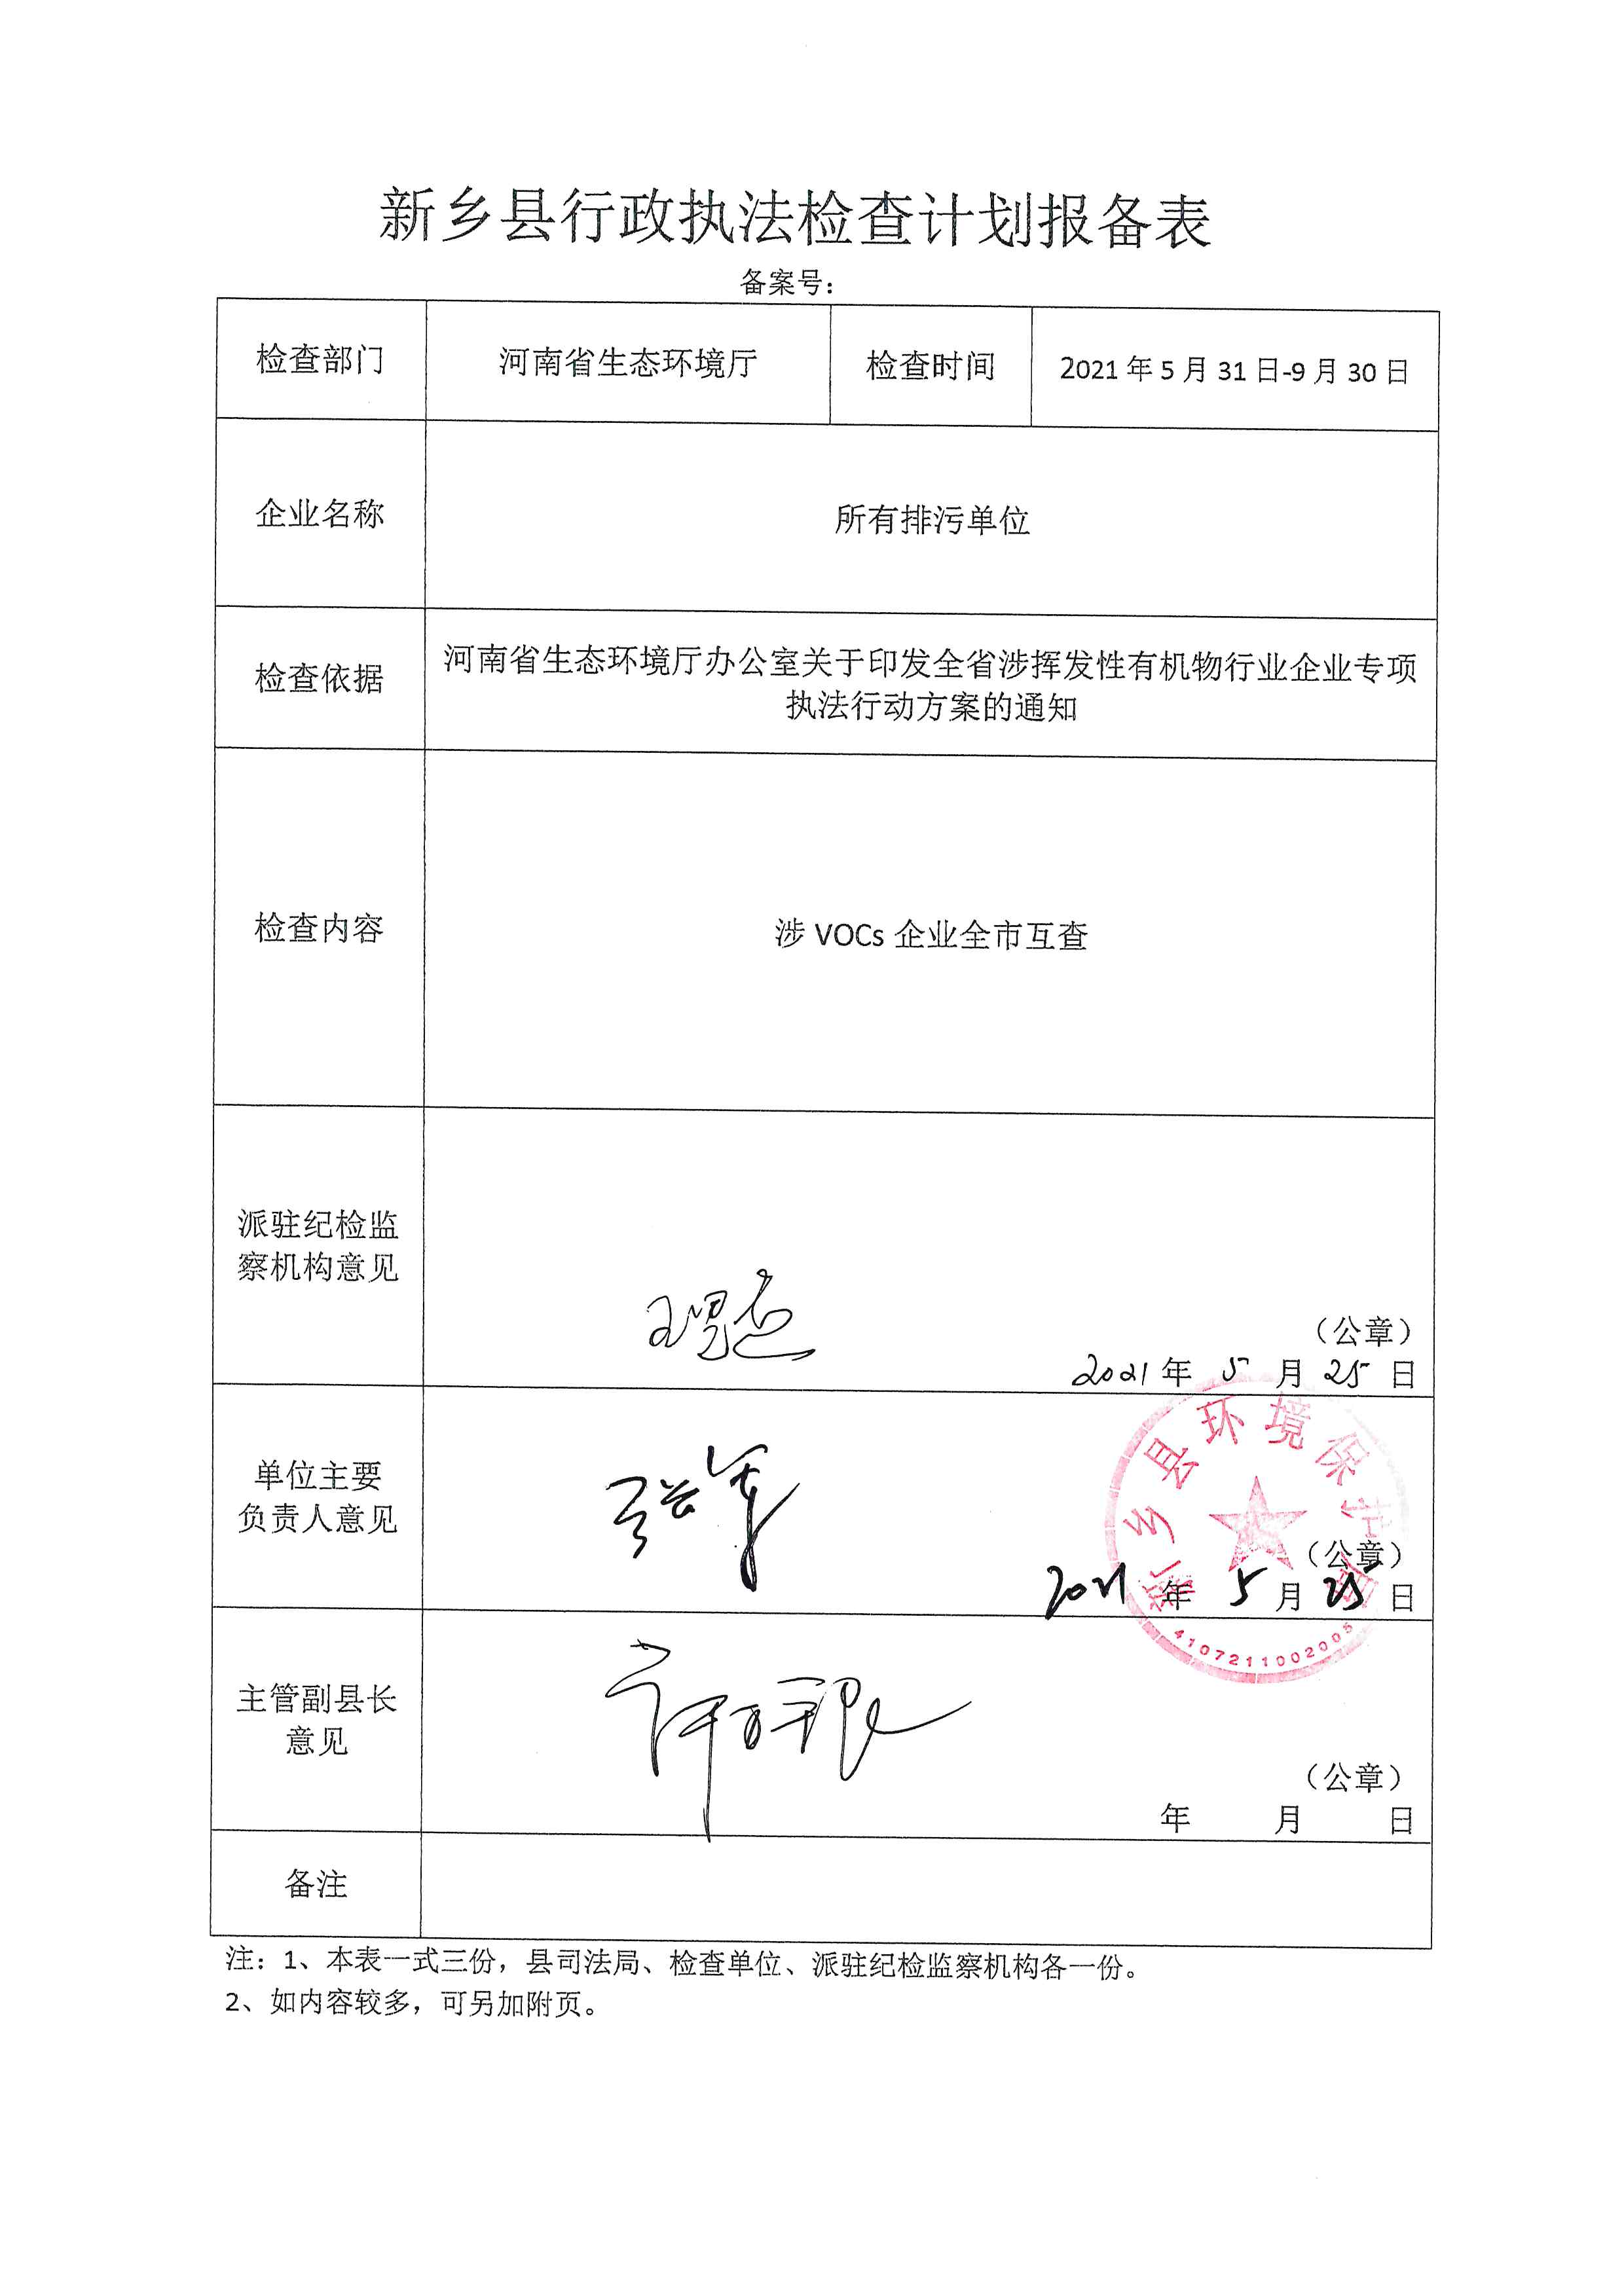 新乡县行政执法检查计划报备表
备案号：
检查部门
河南省生态环境厅
检查时间
2021年5月31日-9月30日
企业名称
所有排污单位
检查依据
河南省生态环境厅办公室关于印发全省涉挥发性有机物行业企业专项
执法行动方案的通知
检查内容
涉 VOCs 企业全市互查
派驻纪检监
察机构意见
（公章）
2021年 5 月 25 日
单位主要
负责人意见
新乡县环境保护局
（公章）
2021 年 5 月 25 日
4107211002005
主管副县长
意见
（公章）
年 月 日
备注
注：1、本表一式三份，县司法局、检查单位、派驻纪检监察机构各一份。
2、如内容较多，可另加附页。